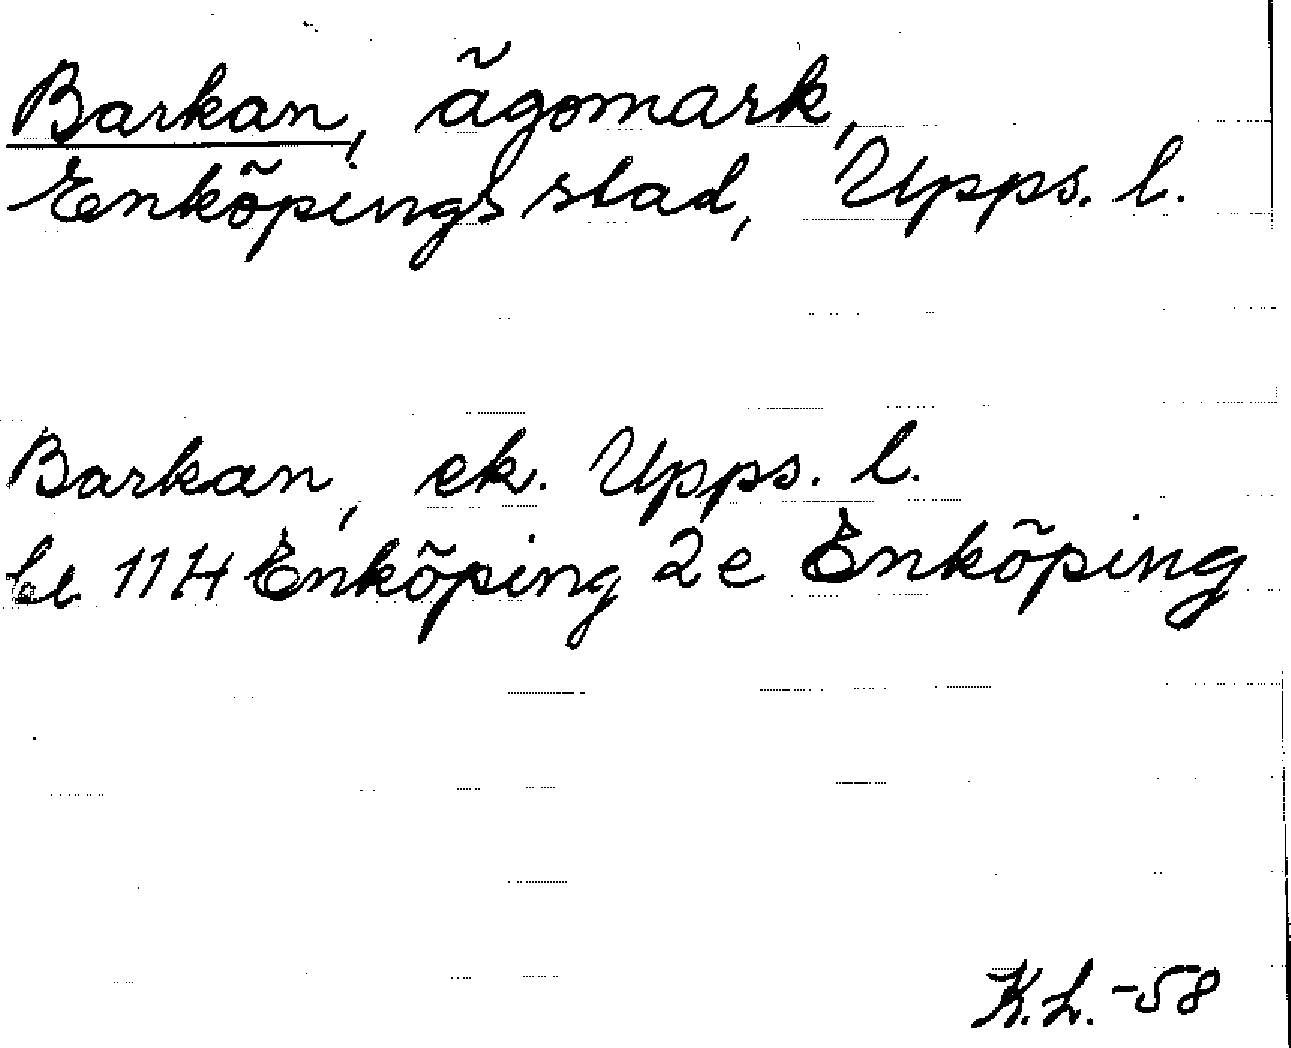 Barkan, ägomark,
Enköpings stad, Upps. l.
Barkan, ek. Upps. l.
bl 11H Enköping 2e Enköping
K.L. -58